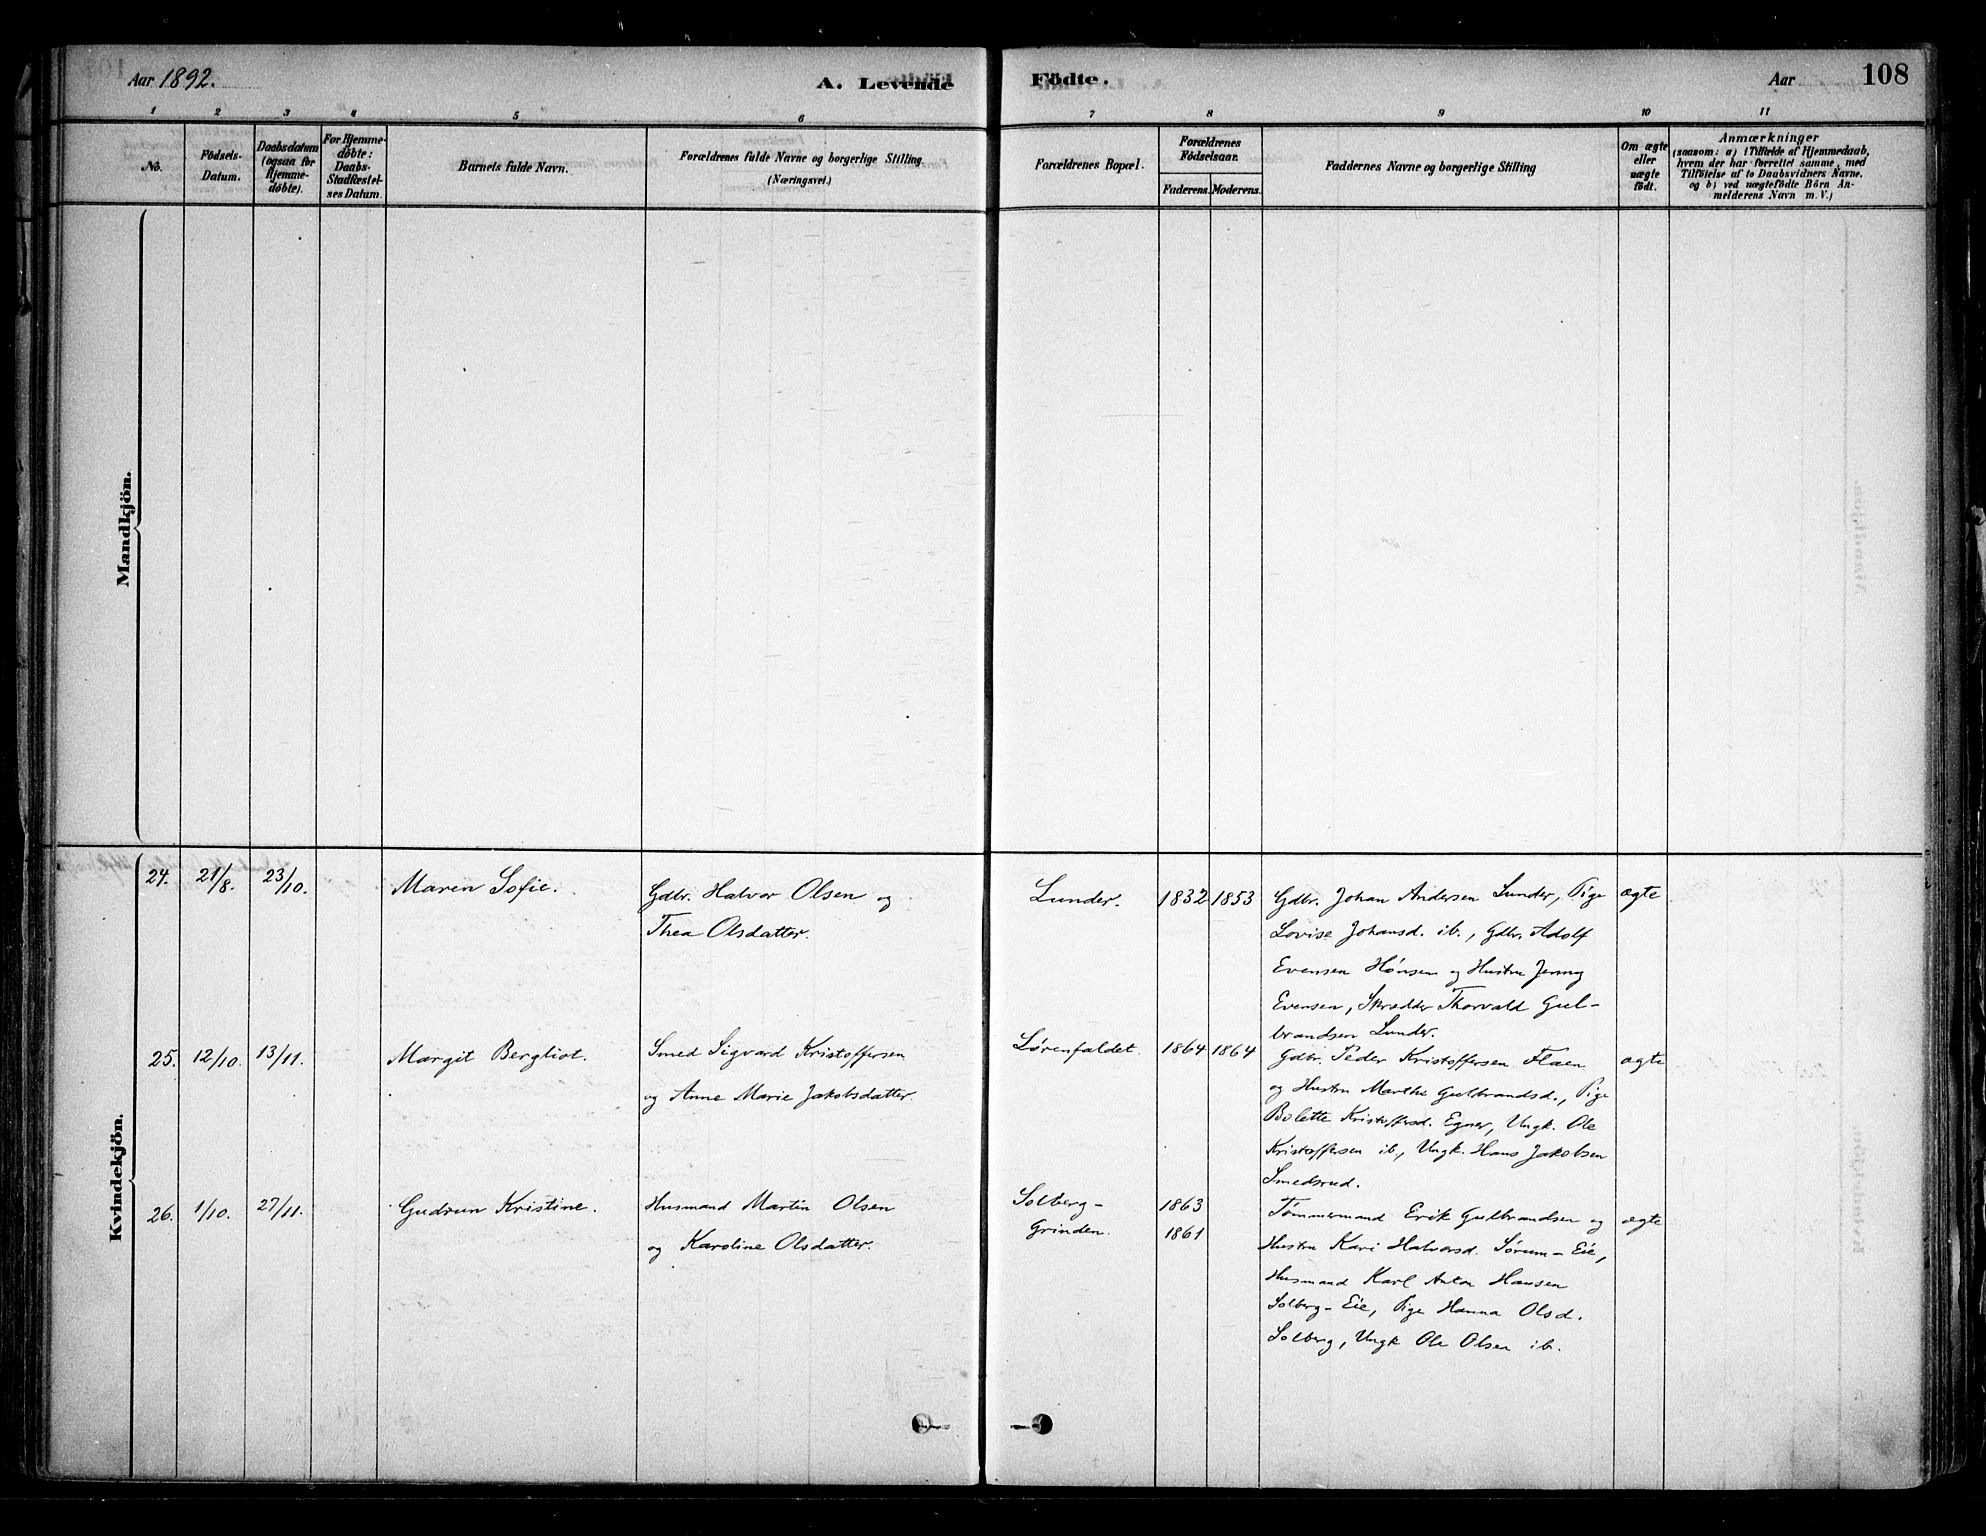 Aar 1892.
A. Levende
Födte.
Aar
108
1 2 3 4 5 6 7 8 9 10 11
No.
Födsels-
Datum.
Daabsdatum
(ogsaa for
Hjemme-
döbte).
For Hjemme-
döbte:
Daabs-
Stadfæstel-
ses Datum.
Barnets fulde Navn.
Forældrenes fulde Navne og borgerlige Stilling
(Næringsvei.)
Forældrenes Bopæl.
Forældrenes
Födselsaar.
Faderens. Moderens.
Faddernes Navne og borgerlige Stilling
Om ægte
eller
uægte
födt.
Anmærkninger
(saasom: a) i Tilfælde af Hjemmedaab,
hvem der har forrettet samme, med
Tilföielse af to Daabsvidners Navne.
og b) ved uægtefödte Börn An-
melderens Navn m. V.)
Mandkjön.
Kvindekjön.
24. 21/8. 23/10. Maren Sofie.
Gdbr. Halvor Olsen og
Thea Olsdatter.
Lunder. 1832 1853
Gdbr. Johan Andersen Lunder, Pige
Lovise Johansd. ib., Gdbr. Adolf
Evensen Hónsen og Hustru Jenny
Evensen, Skrædder Thorvald Gul-
brandsen Lunder.
ægte
25. 12/10. 13/11. Margit Bergliot.
Smed Sigvard Kristoffersen
og Anne Marie Jakobsdatter.
Lørenfaldet. 1864 1864
Gdbr. Peder Kristoffersen Flaen
og Hustru Marthe Gulbrandsd., Pige
Bolette Kristoffersd. Egner, Ungk. Ole
Kristoffersen ib., Ungk. Hans Jakobsen
Smedsrud.
ægte
26. 1/10. 27/11. Gudrun Kristine.
Husmand Martin Olsen
og Karoline Olsdatter.
Solberg-
Grinden.
1863
1861
Tømmermand Erik Gulbrandsen og
Hustru Kari Halvorsd. Sørum-Eie,
Husmand Karl Anton Hansen
Solberg-Eie, Pige Hanna Olsd.
Solberg, Ungk Ole Olsen ib.
ægte